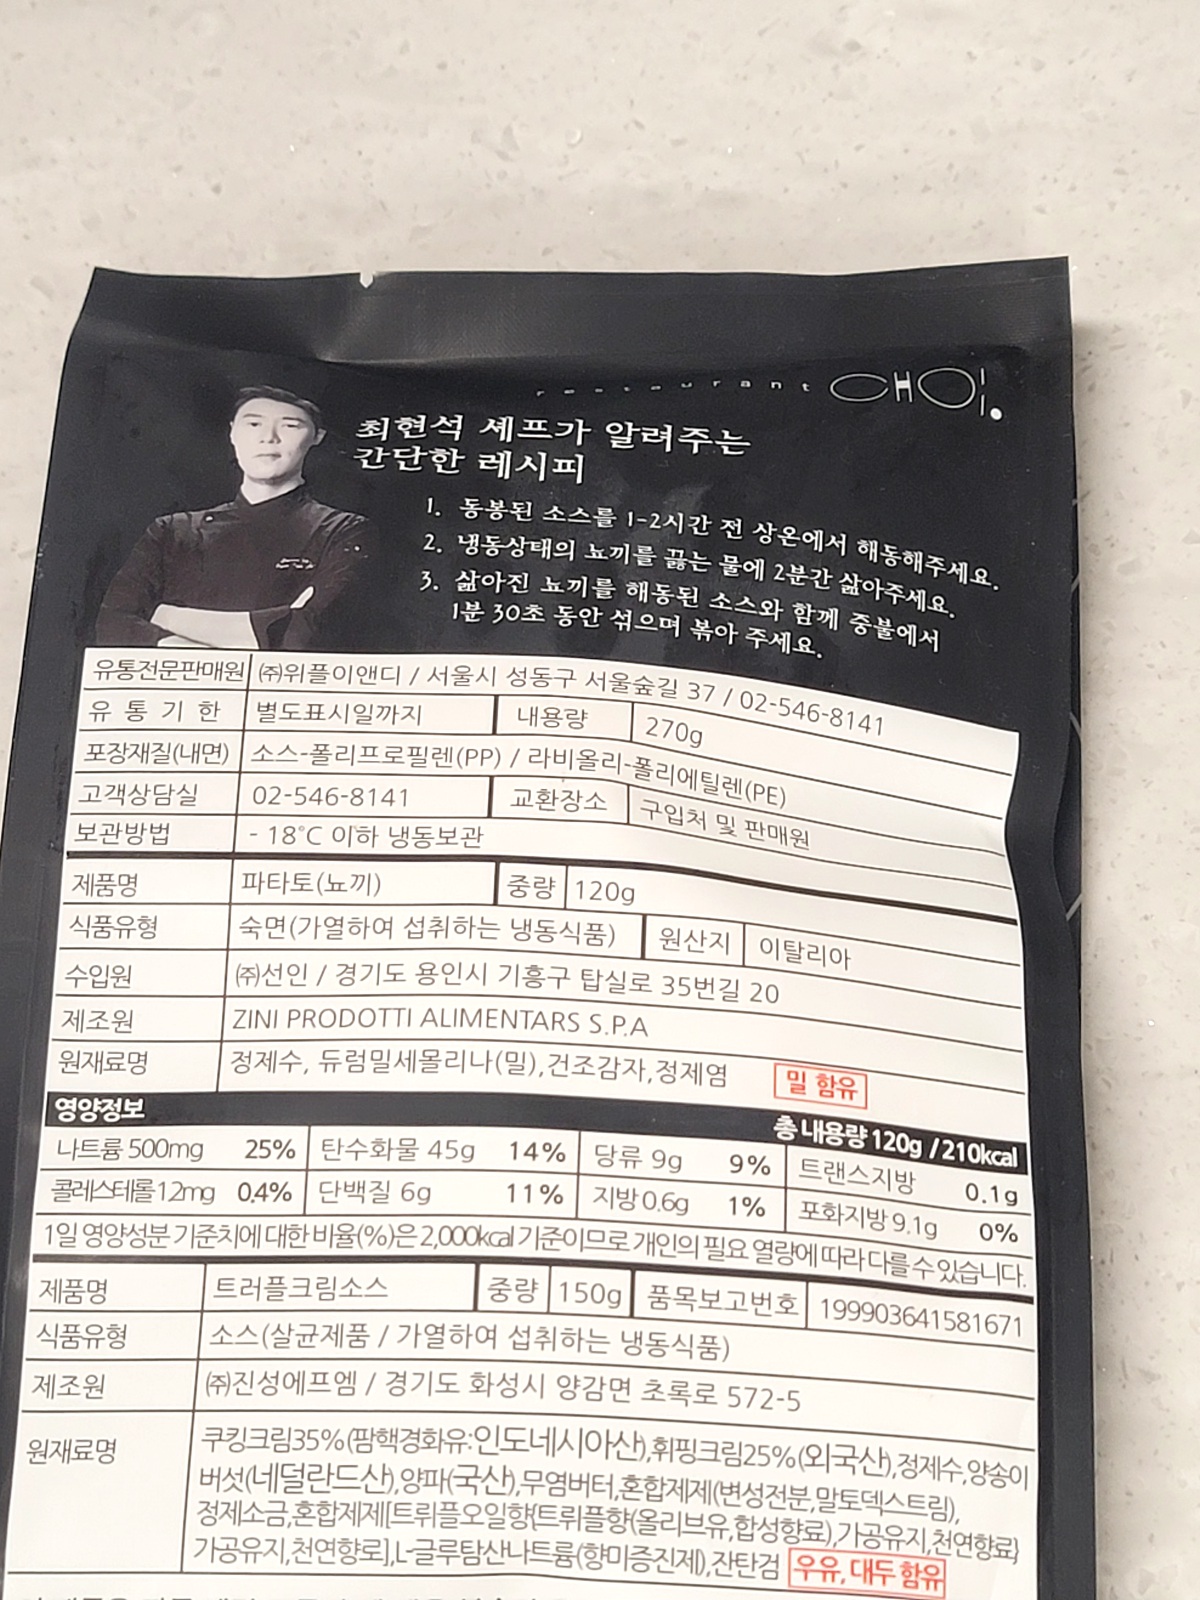 restaurant CHOI.
최현석 셰프가 알려주는
간단한 레시피
1. 동봉된 소스를 1-2시간 전 상온에서 해동해주세요.
2. 냉동상태의 뇨끼를 끓는 물에 2분간 삶아주세요.
3. 삶아진 뇨끼를 해동된 소스와 함께 중불에서
1분 30초 동안 섞으며 볶아 주세요.
유통전문판매원 ㈜위플이앤디 / 서울시 성동구 서울숲길 37 / 02-546-8141
유통기한 별도표시일까지 내용량 270g
포장재질(내면) 소스-폴리프로필렌(PP) / 라비올리-폴리에틸렌(PE)
고객상담실 02-546-8141 교환장소 구입처 및 판매원
보관방법 - 18°C 이하 냉동보관
제품명 파타토(뇨끼) 중량 120g
식품유형 숙면(가열하여 섭취하는 냉동식품) 원산지 이탈리아
수입원 ㈜선인 / 경기도 용인시 기흥구 탑실로 35번길 20
제조원 ZINI PRODOTTI ALIMENTARS S.P.A
원재료명 정제수, 듀럼밀세몰리나(밀),건조감자,정제염 밀 함유
영양정보 총 내용량 120g / 210kcal
나트륨 500mg 25% 탄수화물 45g 14% 당류 9g 9% 트랜스지방 0.1g
콜레스테롤 1.2mg 0.4% 단백질 6g 11% 지방 0.6g 1% 포화지방 9.1g 0%
1일 영양성분 기준치에 대한 비율(%)은 2,000kcal 기준이므로 개인의 필요 열량에 따라 다를 수 있습니다.
제품명 트러플크림소스 중량 150g 품목보고번호 199903641581671
식품유형 소스(살균제품 / 가열하여 섭취하는 냉동식품)
제조원 ㈜진성에프엠 / 경기도 화성시 양감면 초록로 572-5
원재료명 쿠킹크림35%(팜핵경화유:인도네시아산),휘핑크림25%(외국산),정제수,양송이
버섯(네덜란드산),양파(국산),무염버터,혼합제제(변성전분,말토덱스트림),
정제소금,혼합제제[트뤼플오일향{트뤼플향(올리브유,합성향료),가공유지,천연향료}
가공유지,천연향로],L-글루탐산나트륨(향미증진제),잔탄검 우유, 대두 함유